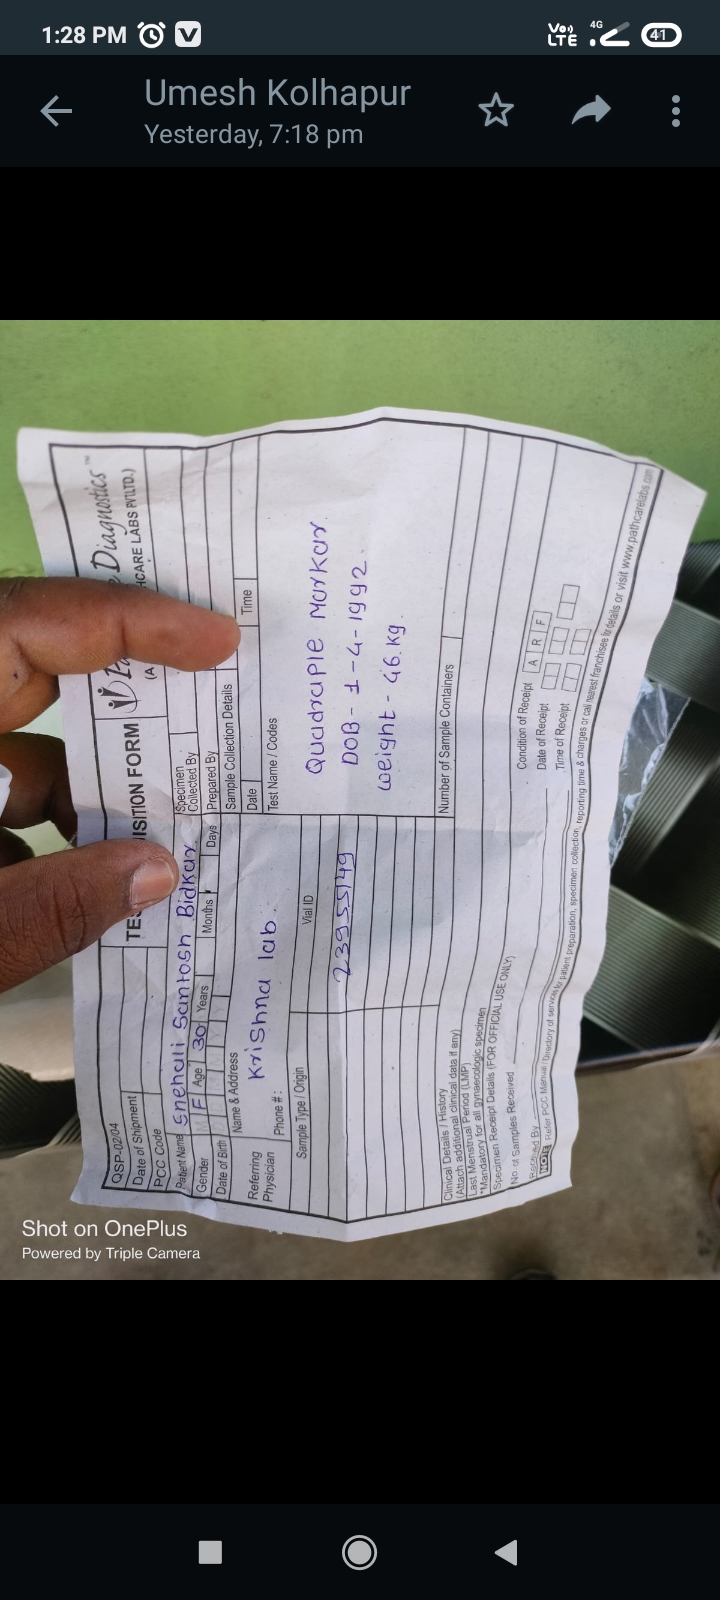 1:28 PM
Vo)) LTE 4G 41
Umesh Kolhapur
Yesterday, 7:18 pm
QSP-02/04
Date of Shipment
PCC Code
ISITION FORM
Diagnostics™
(A
HCARE LABS PVT.LTD.)
Patient Name Snehali Santosh Bidkar
Gender M F Age 30 Years Months Days
Date of Birth
Specimen Collected By
Prepared By
Sample Collection Details
Date Time
Referring Physician
Name & Address
Krishna lab.
Phone #:
Sample Type / Origin Vial ID
23955149
Test Name / Codes
Quadraple Markar.
DOB - 1-4-1992.
weight - 46.kg.
Number of Sample Containers
Clinical Details / History
(Attach additional clinical data if any)
Last Menstrual Period (LMP)
*Mandatory for all gynaecologic specimen
Specimen Receipt Details (FOR OFFICIAL USE ONLY)
No of Samples Received
Received By
Condition of Receipt A R F
Date of Receipt
Time of Receipt
Refer PCC Manual / Directory of services for patient preparation, specimen collection, reporting time & charges or call nearest franchisee for details or visit www.pathcarelabs.com
Shot on OnePlus
Powered by Triple Camera